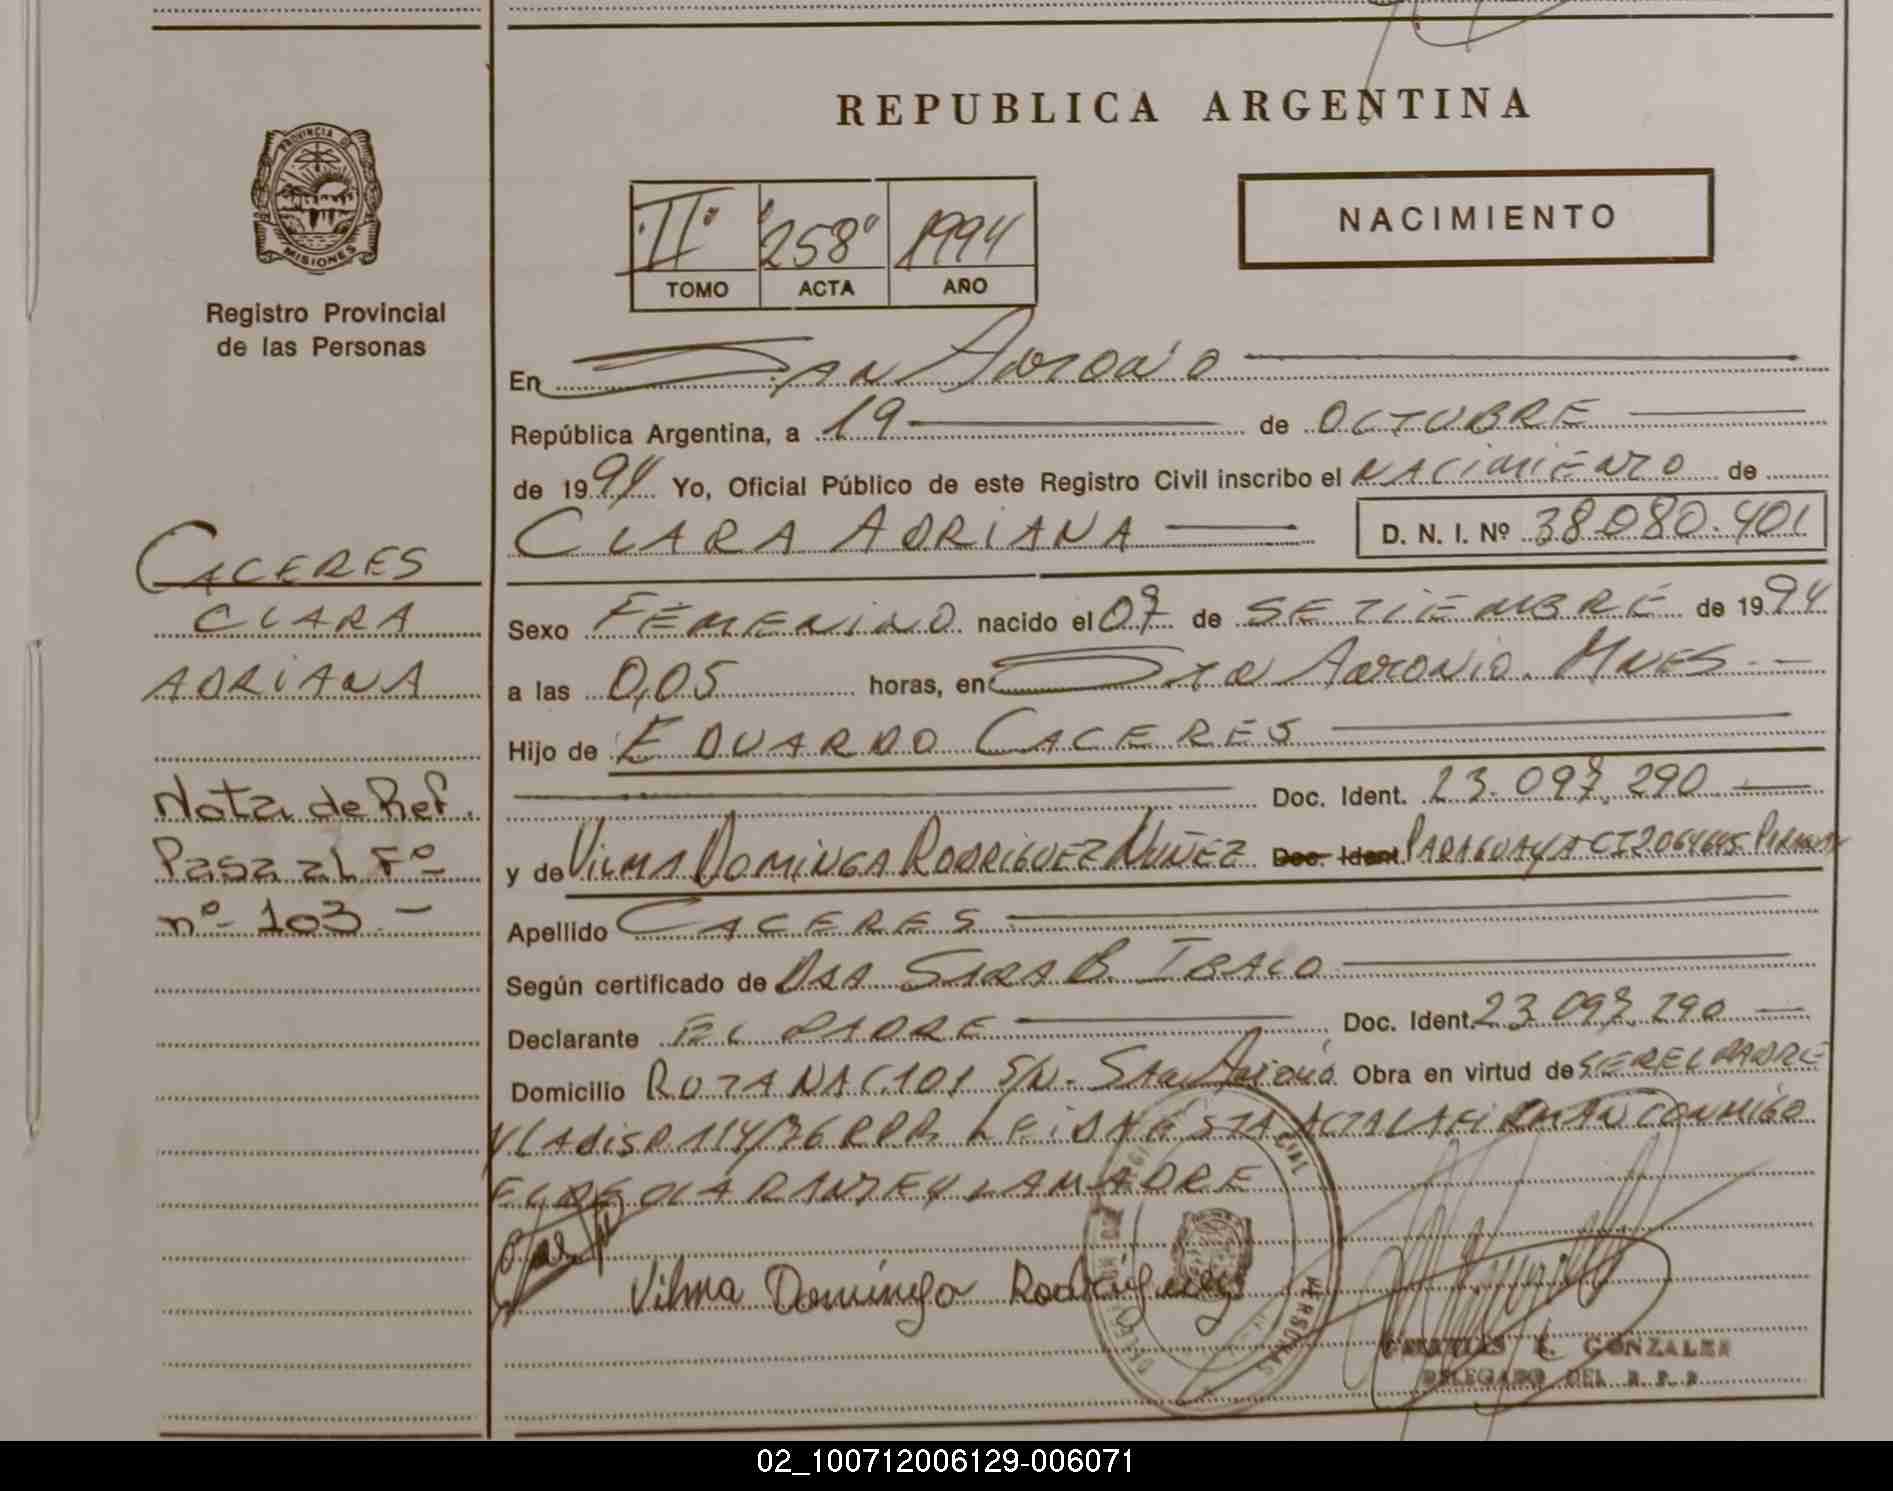 REPUBLICA ARGENTINA
PROVINCIA DE
MISIONES
Registro Provincial
de las Personas
"II" "258" 1994
TOMO ACTA AÑO
NACIMIENTO
En San Antonio
República Argentina, a 19 de OCTUBRE
de 1994 Yo, Oficial Público de este Registro Civil inscribo el NACIMIENTO de
CLARA ADRIANA D. N. I. Nº 38.080.401
CACERES
CLARA
ADRIANA
Sexo FEMENINO nacido el 07 de SETIEMBRE de 1994
a las 0,05 horas, en Sto Antonio. Mnes
Hijo de EDUARDO CACERES
Doc. Ident. 23.097.290
y de VILMA DOMINGA RODRIGUEZ NUÑEZ Doc. Ident PARAGUAYA CI
Apellido CACERES
Según certificado de DRA SARA B.
Declarante EL PADRE Doc. Ident. 23.097.290
Domicilio RUTA NAC. 101 S/N - San Antonio Obra en virtud de SER EL PADRE
Y LA DISP. 114/ RPP. LEIDA ESTA ACTA LA FIRMAN CONMIGO
EL DECLARANTE Y LA MADRE
Nota de Ref.
Pasa al Fº
nº- 103 -
Vilma Dominga Rodríguez
PERSONAS
GONZALEZ
DELEGADO DEL R. P. P.
02_100712006129-006071